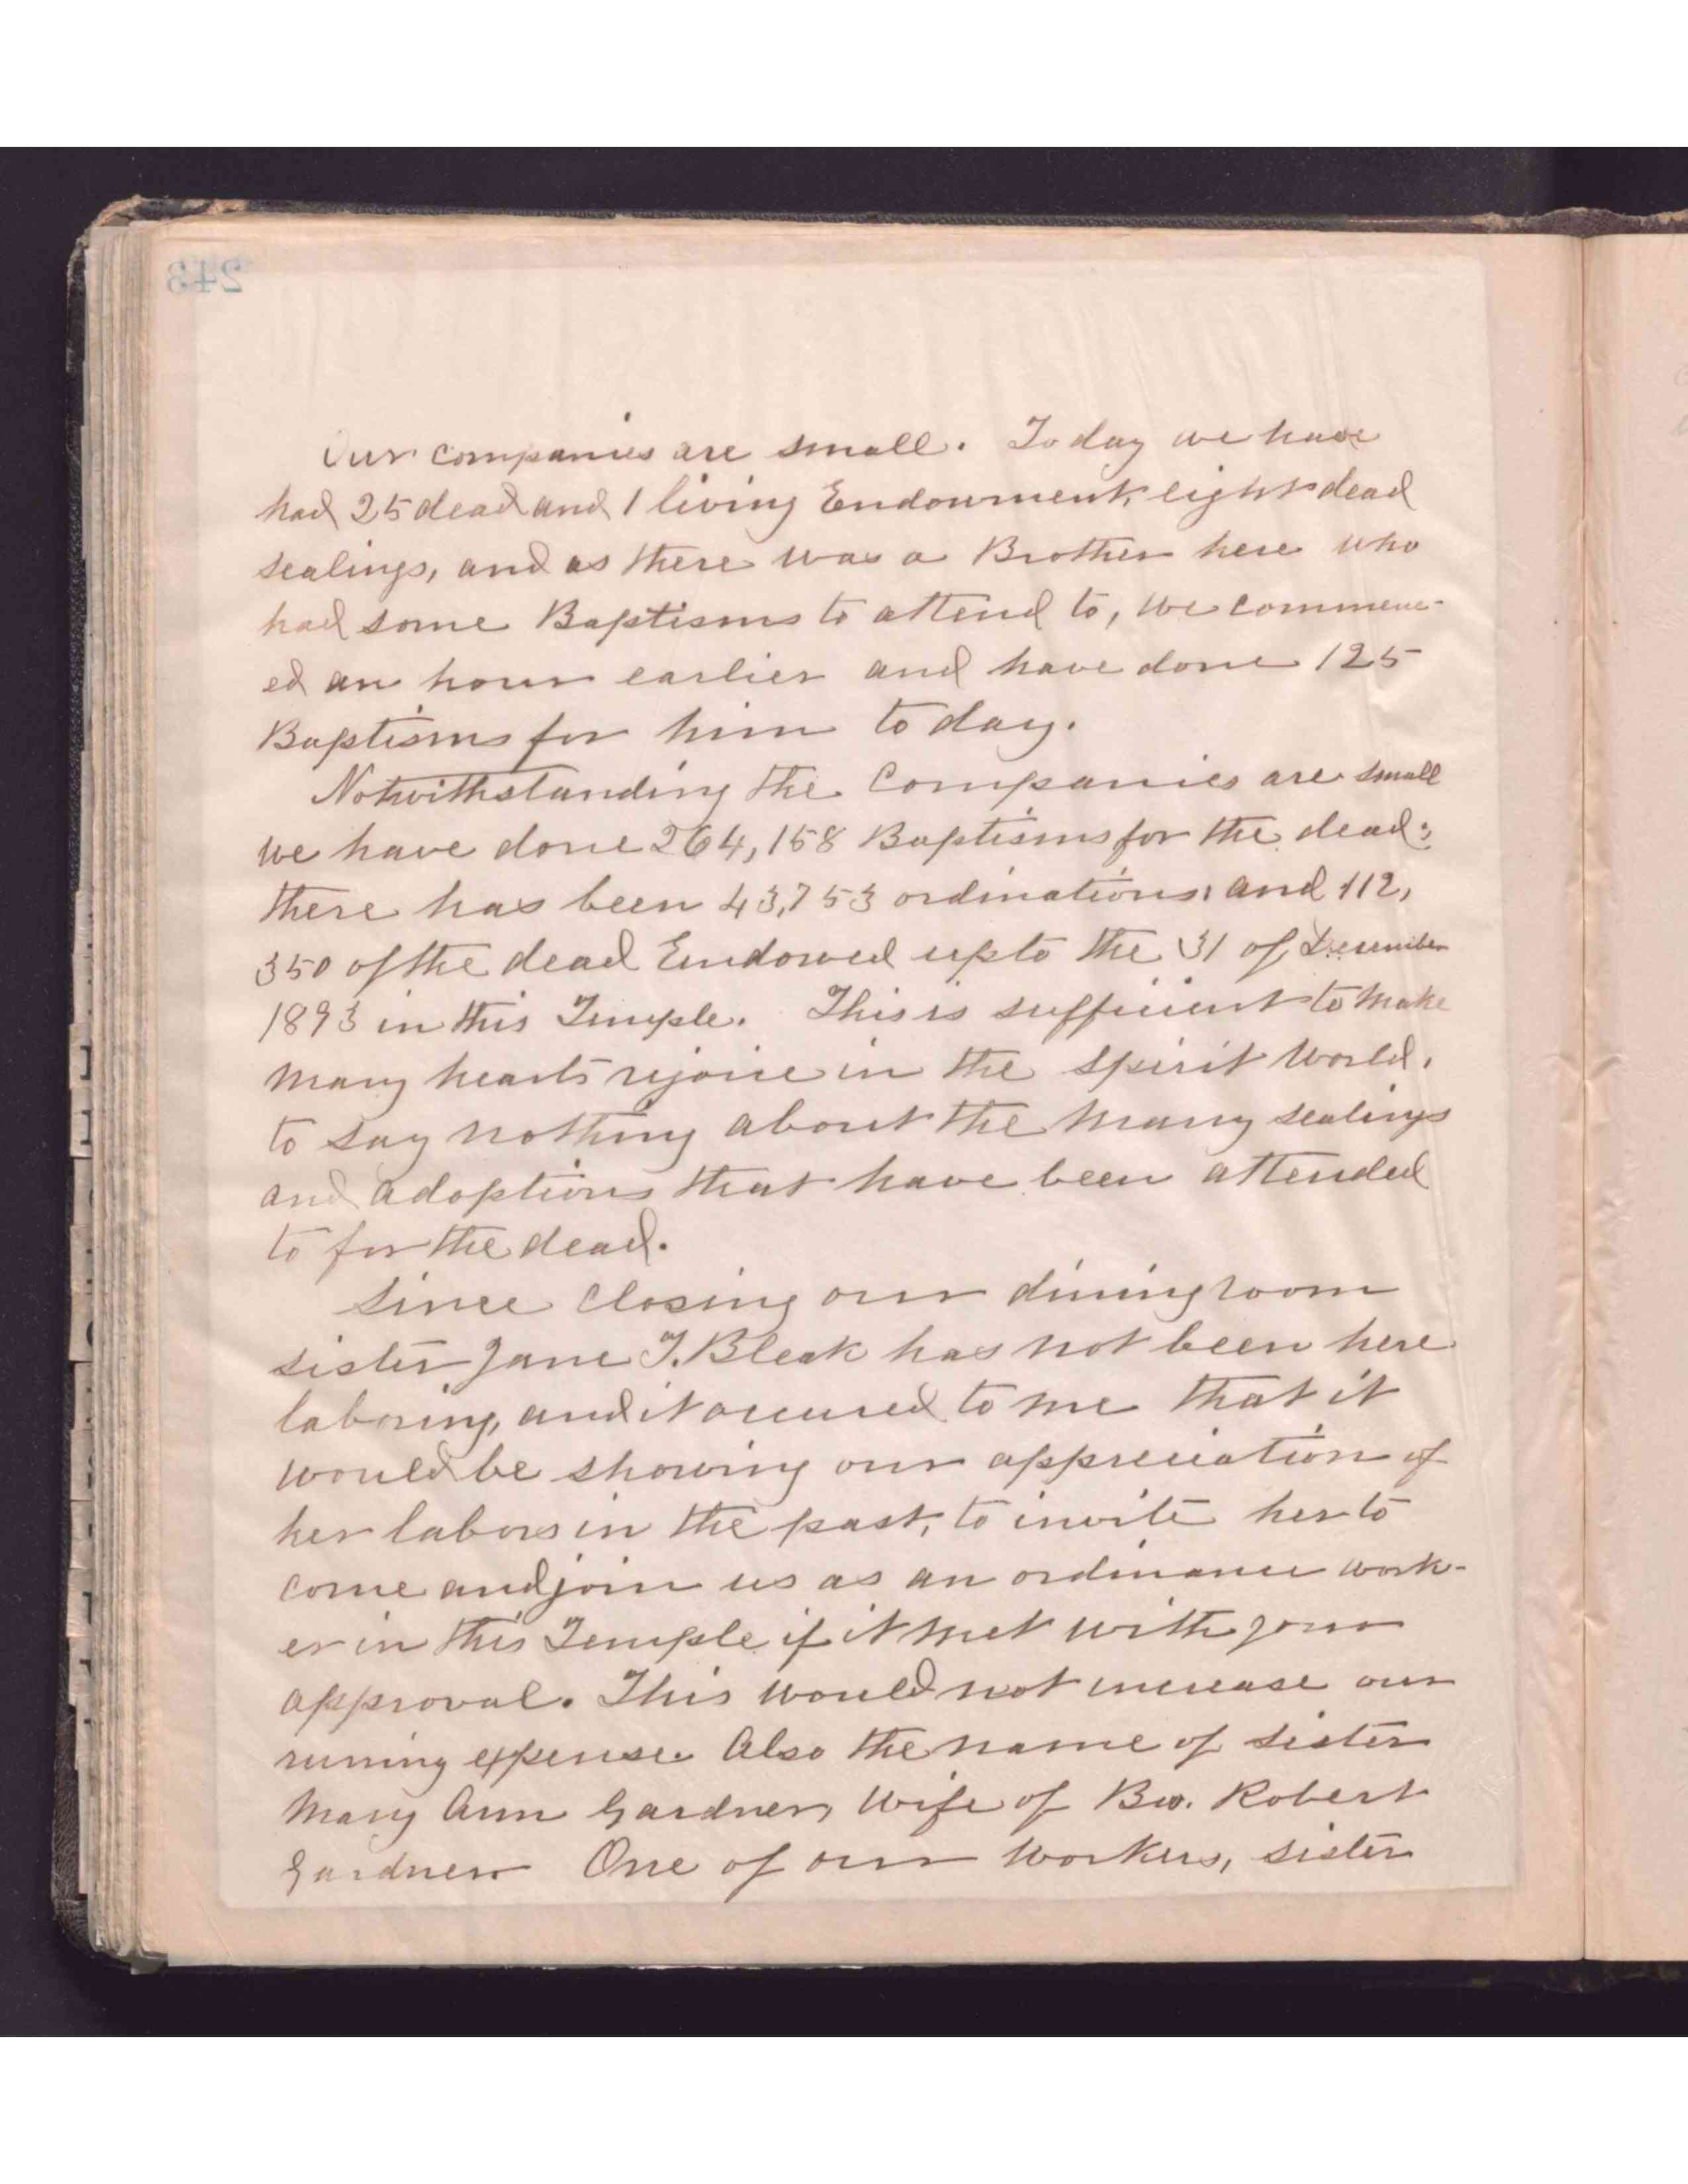 243
Our companies are small. To day we have
had 25 dead and 1 living Endowment, eight dead
sealings, and as there was a Brother here who
had some Baptisms to attend to, we commenc-
ed an hour earlier and have done 125
Baptisms for him to day.
Notwithstanding the Companies are small
we have done 264,158 Baptisms for the dead;
there has been 43,753 ordinations, and 112,
350 of the dead Endowed up to the 31 of December
1893 in this Temple. This is sufficient to make
many hearts rejoice in the Spirit World,
to say nothing about the many sealings
and adoptions that have been attended
to for the dead.
Since closing our dining room
sister Jane T. Bleak has not been here
laboring, and it occured to me that it
would be showing our appreciation of
her labors in the past, to invite her to
come and join us as an ordinance work-
er in this Temple if it met with your
approval. This would not increase our
runing expense. Also the name of sister
Mary Ann Gardner, wife of Bro. Robert
Gardner One of our workers, sister